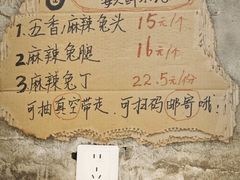 1. 五香,麻辣兔头 15元/个
2. 麻辣兔腿 16元/个
3. 麻辣兔丁 22.5元/份
可抽真空带走,可扫码邮寄哦!